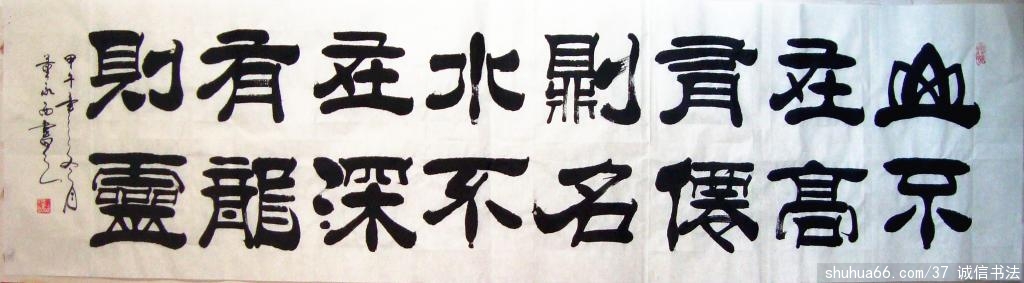 山不
在高
有僊
則名
水不
在深
有龍
則靈
甲午年之冬月
書之
shuhua66.com/37 诚信书法